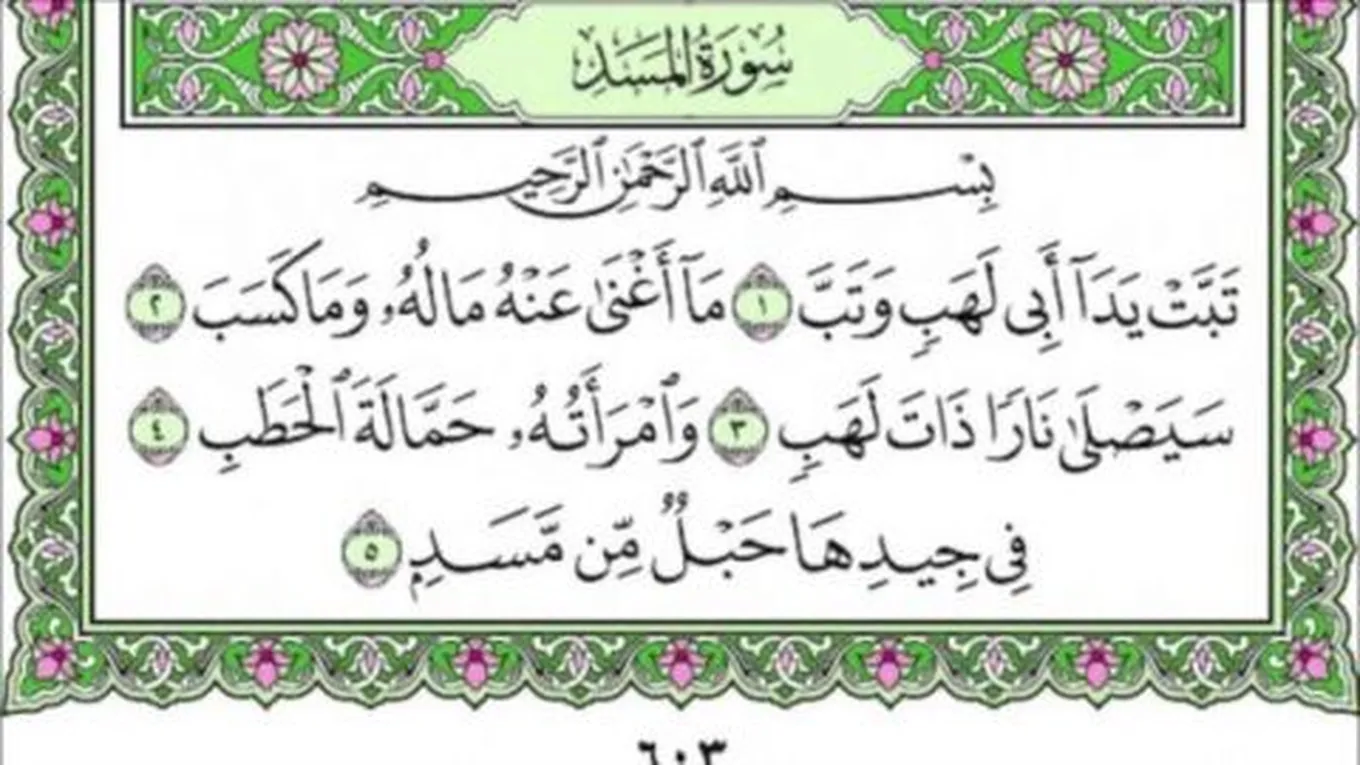 سُورَةُ المَسَدِ
بِسْمِ ٱللَّهِ ٱلرَّحْمَٰنِ ٱلرَّحِيمِ
تَبَّتْ يَدَآ أَبِى لَهَبٍ وَتَبَّ ١ مَآ أَغْنَىٰ عَنْهُ مَالُهُۥ وَمَا كَسَبَ ٢
سَيَصْلَىٰ نَارًا ذَاتَ لَهَبٍ ٣ وَٱمْرَأَتُهُۥ حَمَّالَةَ ٱلْحَطَبِ ٤
فِى جِيدِهَا حَبْلٌ مِّن مَّسَدٍۭ ٥
٦٠٣